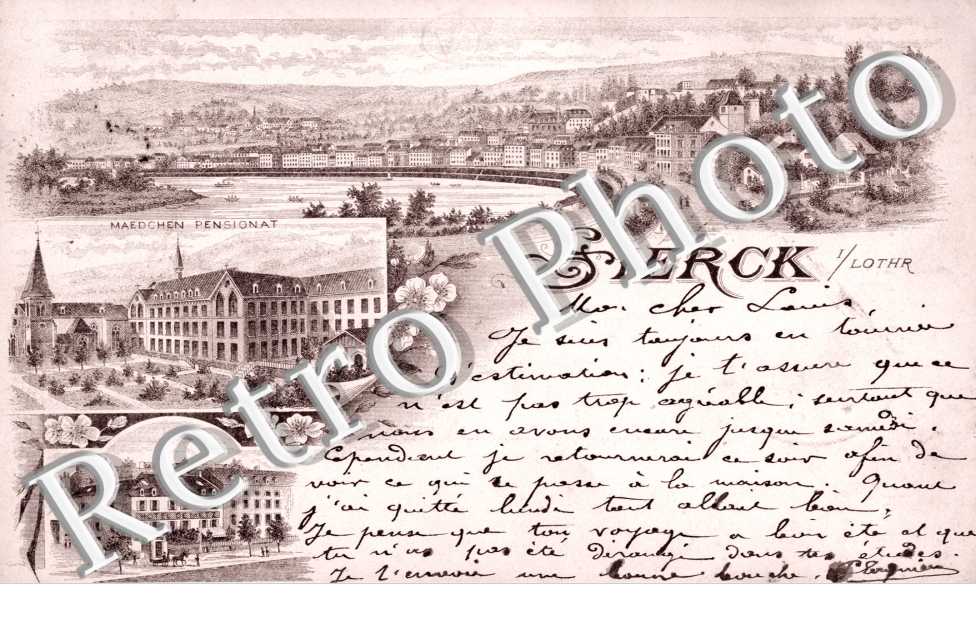 MAEDCHEN PENSIGNAT
SIERCK I/LOTHR
Mon cher Louis
Je suis toujours en tournée
d'estimation; je t'assure que ce
n'est pas trop agréable; surtout que
nous en avons encore jusque samedi.
Cependant je retournerai ce soir afin de
voir ce qui se passe à la maison. Quant
j'ai quitté lundi tout allait bien,
Je pense que ton voyage a bien été et que
tu n'as pas été dérangé dans tes études.
Je t'envoie une bonne bouche.
Retro Photo